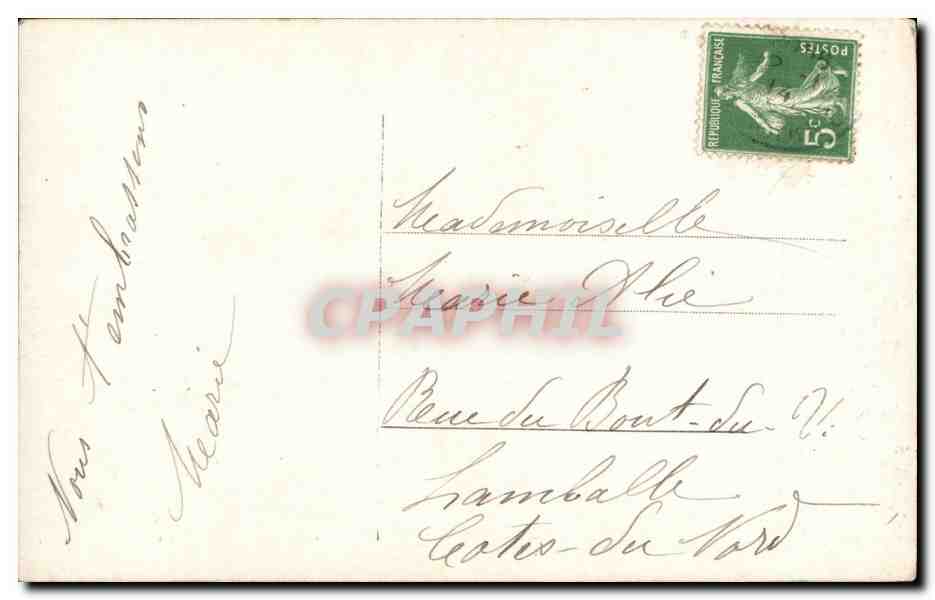 Nous t'embrassons
Marie
REPUBLIQUE FRANÇAISE
POSTES
5c
Mademoiselle
Marie Alie
CPAPHIL
Rue du Bout-du-V.
Lamballe
Cotes-du Nord